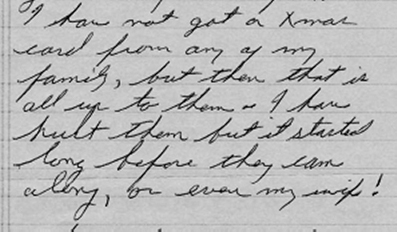 I have not got a Xmas
card from any of my
family, but then that is
all up to them - I have
hurt them but it started
long before they came
along, or even my wife!